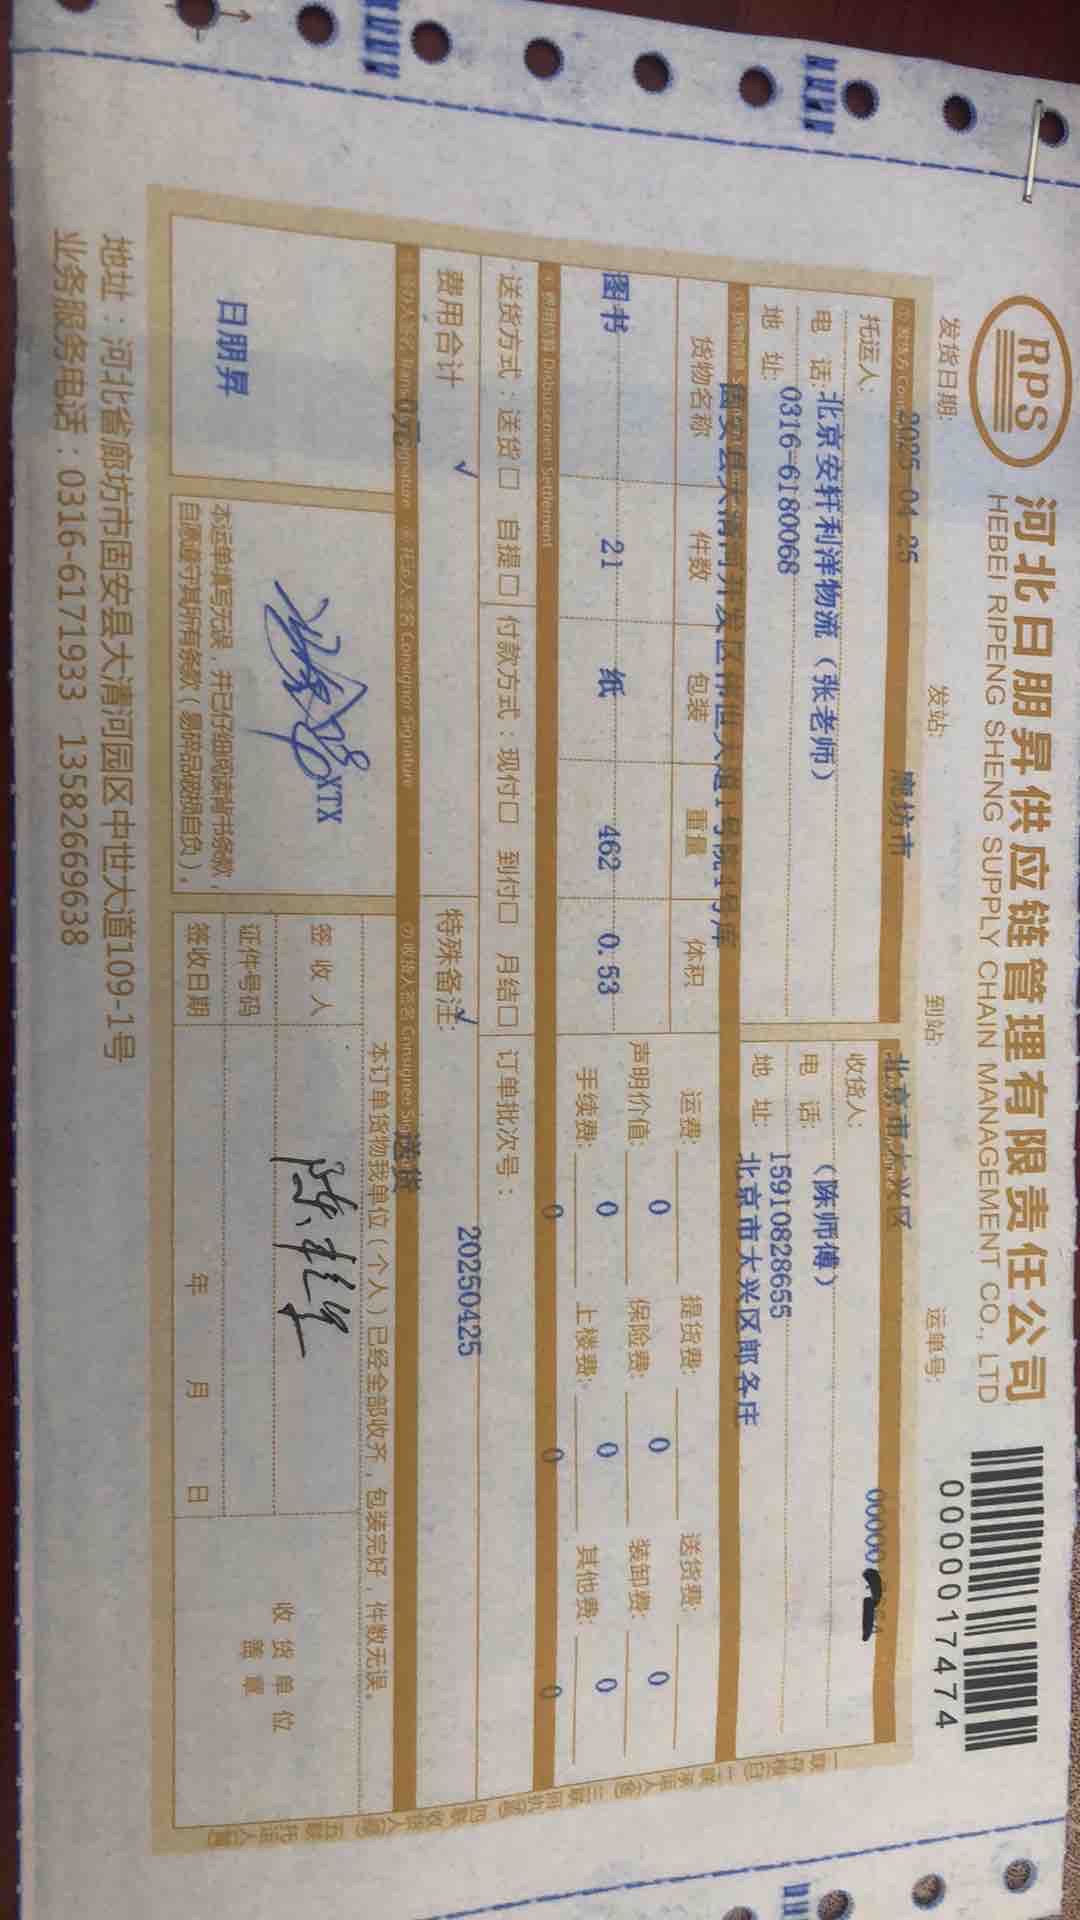 RPS
河北日朋昇供应链管理有限责任公司
HEBEI RIPENG SHENG SUPPLY CHAIN MANAGEMENT CO., LTD
0000017474
发货日期:
2025-04-25
发站:
廊坊市
到站:
北京市大兴区
运单号:
托运人:
北京安轩利洋物流（张老师）
电 话:
0316-6180068
地 址:
收货人:
（陈师傅）
电 话:
15910828655
地 址:
北京市大兴区郎各庄
货物名称 件数 包装 重量 体积
图书 21 纸 462 0.53
运费: 0 提货费: 0 送货费: 0
声明价值: 0 保险费: 0 装卸费: 0
手续费: 0 上楼费: 0 其他费: 0
费用结算 Disbursement Settlement
送货方式：送货□ 自提□ 付款方式：现付□ 到付□ 月结□ 订单批次号：
20250425
费用合计
0元
✓
特殊备注:
✓
送货
托运人签名 Consignor Signature
收货人签名 Consignee
日朋昇
XTX
本运单填写无误，并已仔细阅读背书条款，
自愿遵守其所有条款（易碎品破损自负）。
本订单货物我单位（个人）已经全部收齐，包装完好，件数无误。
签收人
证件号码
签收日期
年 月 日
收货单位
盖章
地址：河北省廊坊市固安县大清河园区中世大道109-1号
业务服务电话：0316-6171933 13582669638